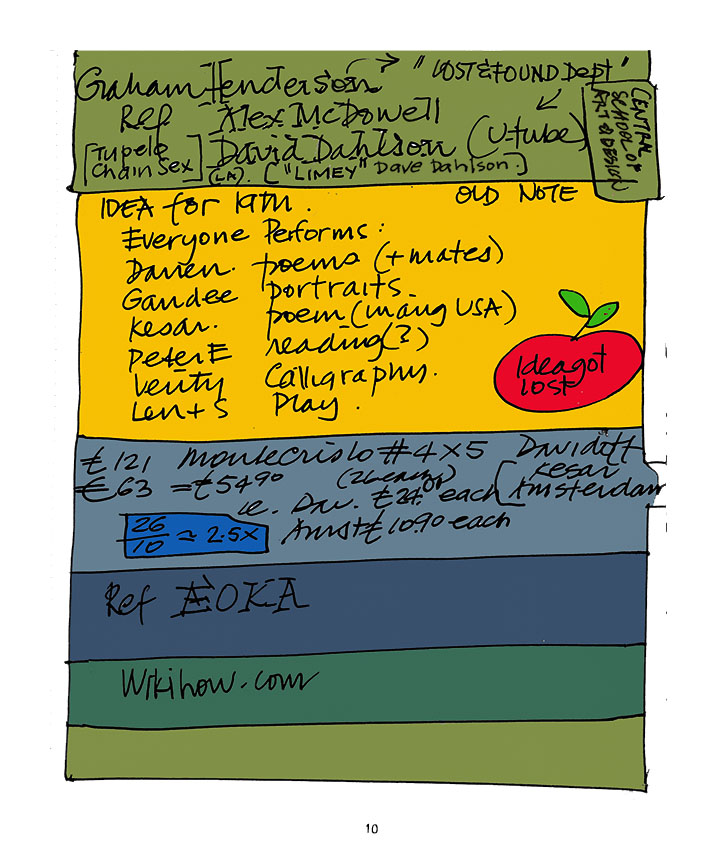 Graham Henderson → "LOST & FOUND Dept"
Ref Alex McDowell
[Tupelo Chain Sex] David Dahlson (U-tube)
(LA). ["LIMEY" Dave Dahlson.]
CENTRAL
SCHOOL OF
ART & DESIGN
IDEA for 19th. OLD NOTE
Everyone Performs:
Darren. poems (+ mates)
Gandee portraits
Kesar. poem (maing USA)
Peter E reading (?)
Verity Calligraphy.
Len + S Play.
Idea got
LOST
£121 Montecristo #4 X 5 Davidoff
€63 = £5490 (26 each) [Kesar
ie. Dav. £24. each Amsterdam
26/10 ≃ 2.5X Amst £10.90 each
Ref EOKA
Wikihow.com
10